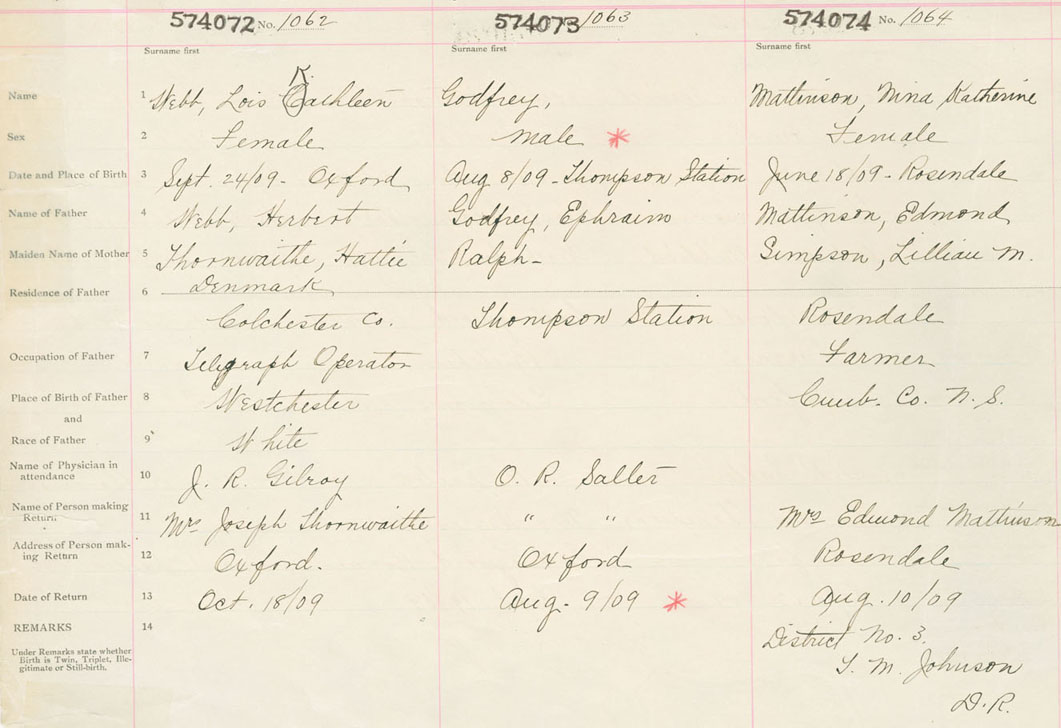 574072 No. 1062 574073 1063 574074 No. 1064
Surname first Surname first Surname first
K.
Name 1 Webb, Lois Cathleen Godfrey, Mattinson, Nina Katherine
Sex 2 Female male * Female
Date and Place of Birth 3 Sept. 24/09 - Oxford Aug 8/09 - Thompson Station June 18/09 - Rosendale
Name of Father 4 Webb, Herbert Godfrey, Ephraim Mattinson, Edmond
Maiden Name of Mother 5 Thornwaithe, Hattie Ralph - Simpson, Lillian M.
Residence of Father 6 Denmark
Colchester Co. Thompson Station Rosendale
Occupation of Father 7 Telegraph Operator Farmer
Place of Birth of Father 8 Westchester Cumb. Co. N. S.
and
Race of Father 9 White
Name of Physician in
attendance 10 J. R. Gilroy O. R. Salter
Name of Person making
Return 11 Mrs Joseph Thornwaithe " " Mrs Edmond Mattinson
Address of Person mak-
ing Return 12 Oxford. Oxford Rosendale
Date of Return 13 Oct. 18/09 Aug. 9/09 * Aug. 10/09
REMARKS 14
District No. 3.
Under Remarks state whether
Birth is Twin, Triplet, Ille-
gitimate or Still-birth.
T. M. Johnson
D. R.